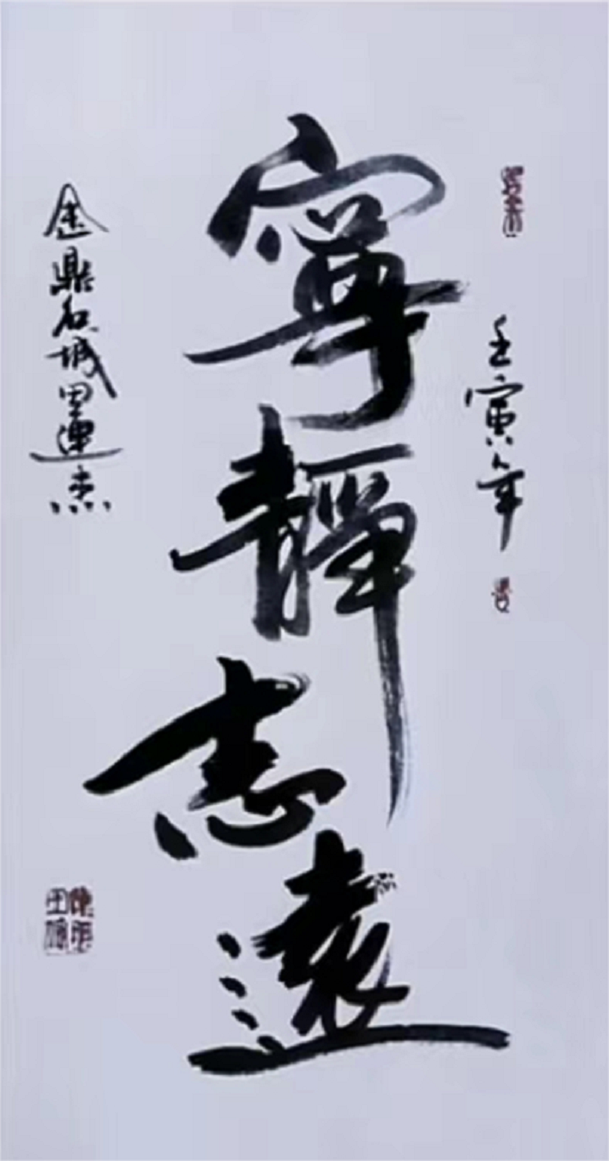 壬寅年
寧靜志遠
金鼎石城里運杰